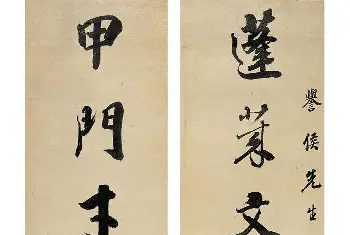 譽侯先生
蓬萊文
甲門才